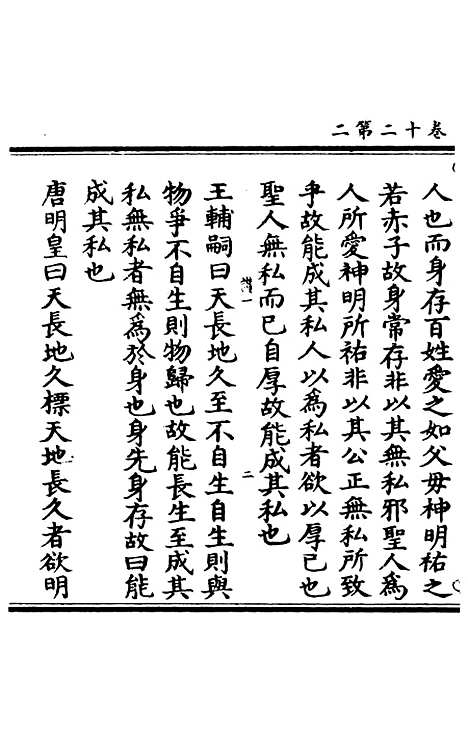 二第二十卷
人也而身存百姓愛之如父毋神明祐之
若赤子故身常存非以其無私邪聖人爲
人所愛神明所祐非以其公正無私所致
乎故能成其私人以爲私者欲以厚已也
聖人無私而已自厚故能成其私也
王輔嗣曰天長地久至不自生自生則與
物爭不自生則物歸也故能長生至成其
私無私者無爲於身也身先身存故曰能
成其私也
唐明皇曰天長地久標天地長久者欲明
二